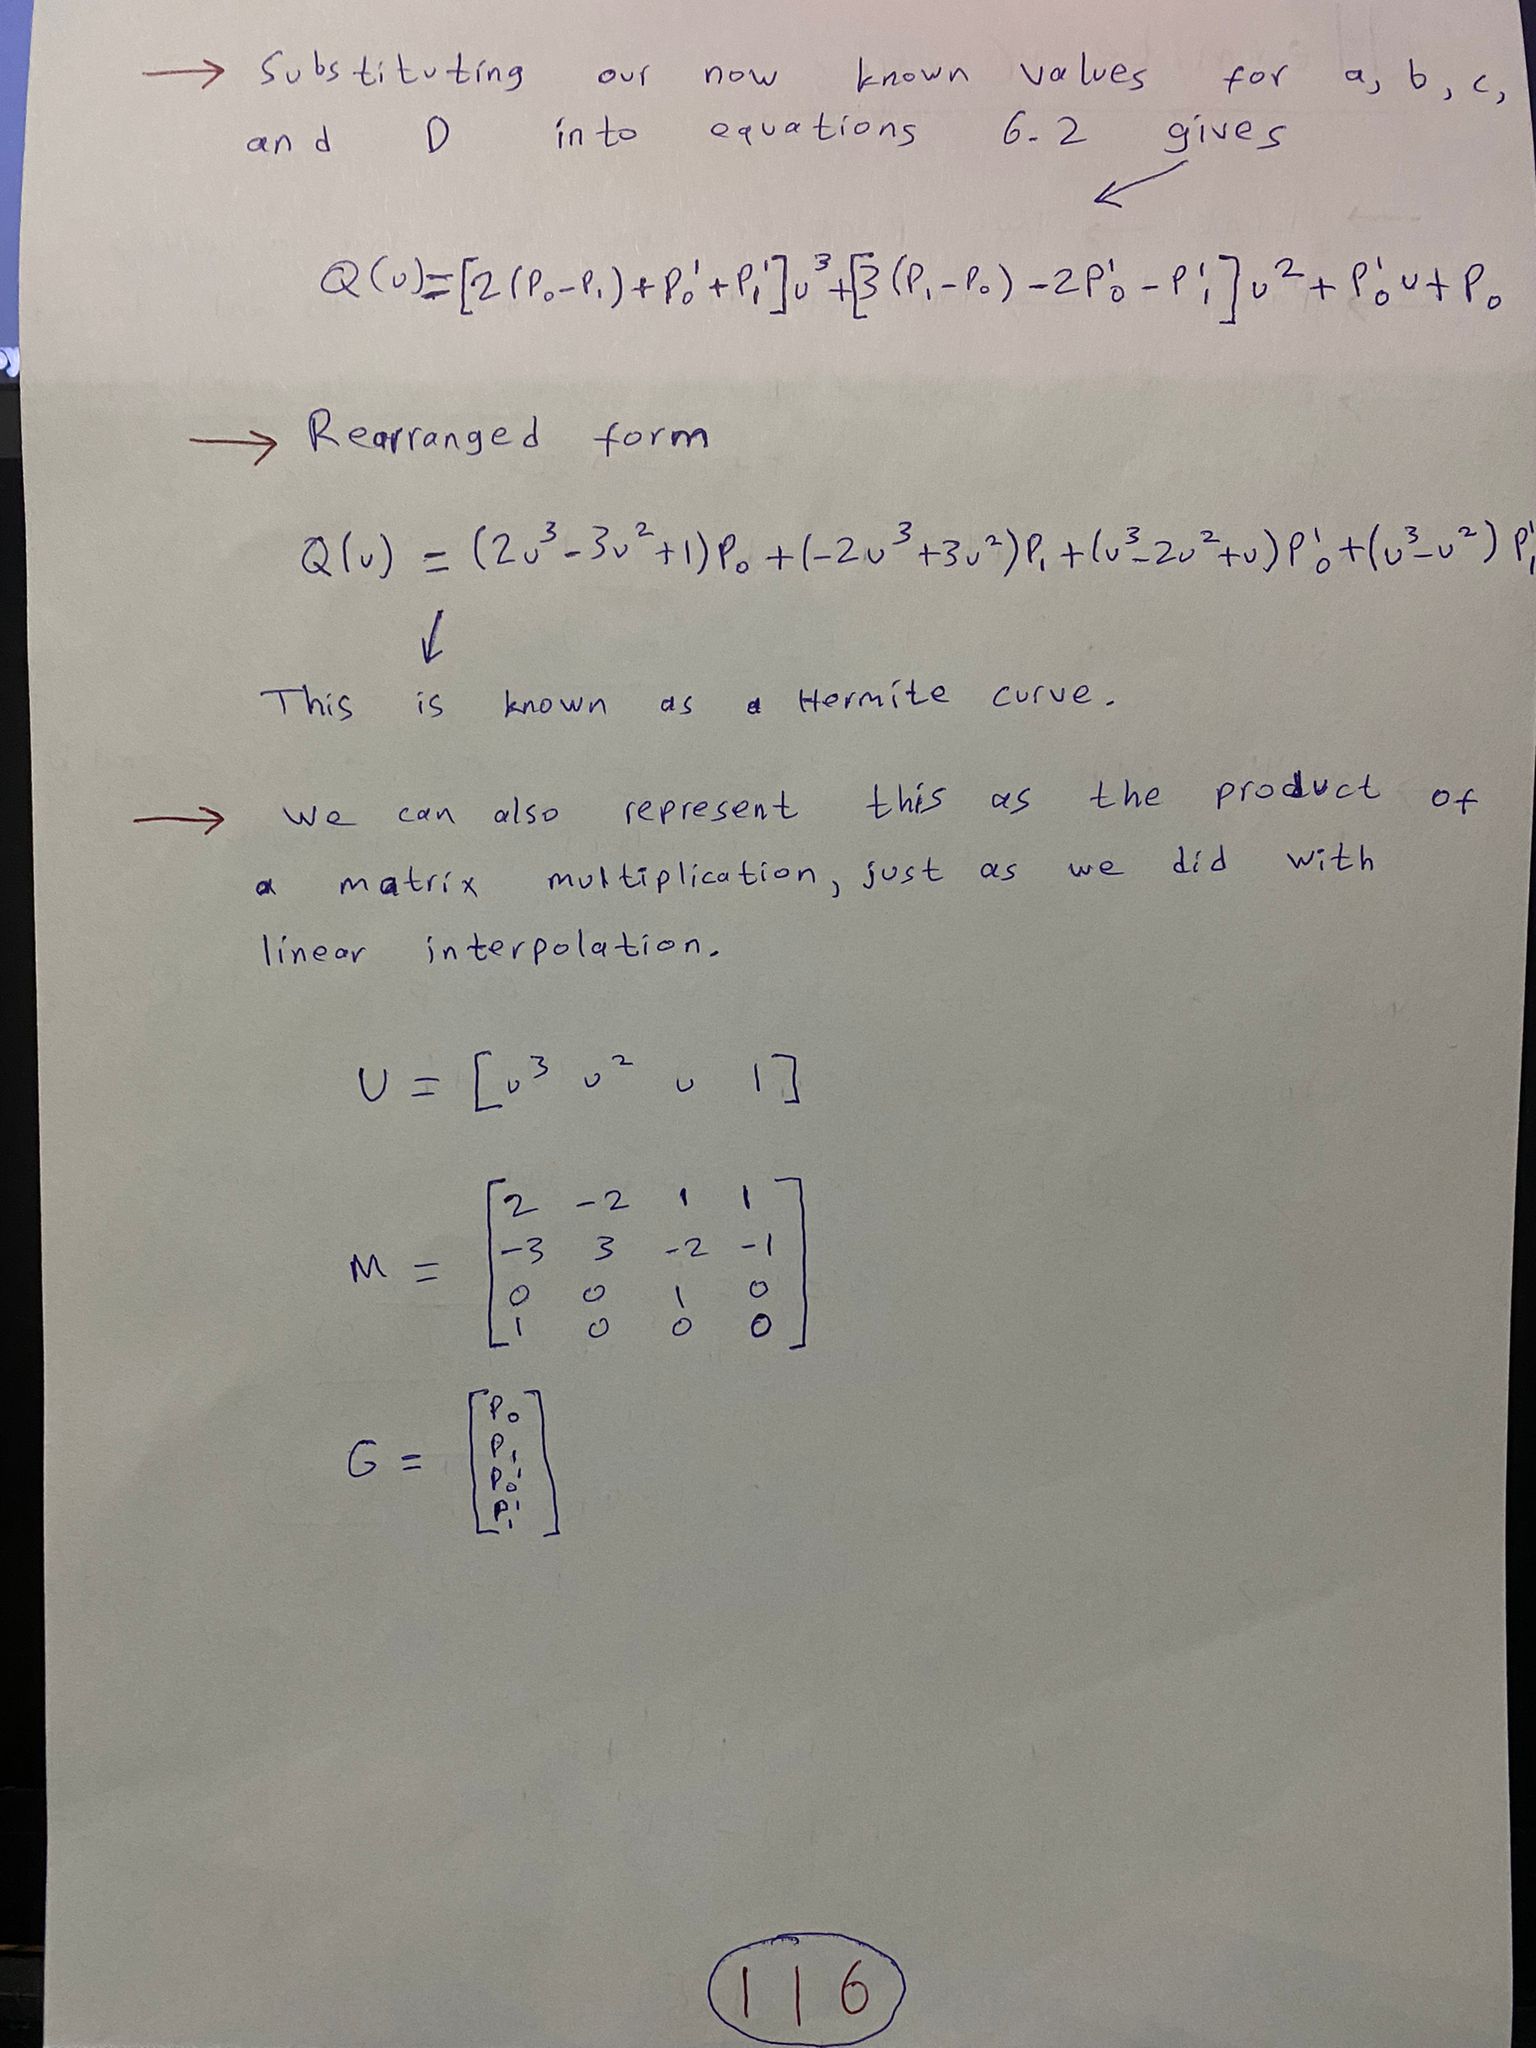 → Substituting our now known values for a, b, c,
and D into equations 6.2 gives
Q(u)=[2(P₀-P₁)+P₀'+P₁']u³+[3(P₁-P₀)-2P₀'-P₁']u²+P₀'u+P₀
→ Rearranged form
Q(u) = (2u³-3u²+1)P₀+(-2u³+3u²)P₁+(u³-2u²+u)P₀'+(u³-u²)P₁'
↓
This is known as a Hermite curve.
→ We can also represent this as the product of
a matrix multiplication, just as we did with
linear interpolation.
U = [u³ u² u 1]
M = [2 -2 1 1
-3 3 -2 -1
0 0 1 0
1 0 0 0]
G = [P₀
P₁
P₀'
P₁']
116